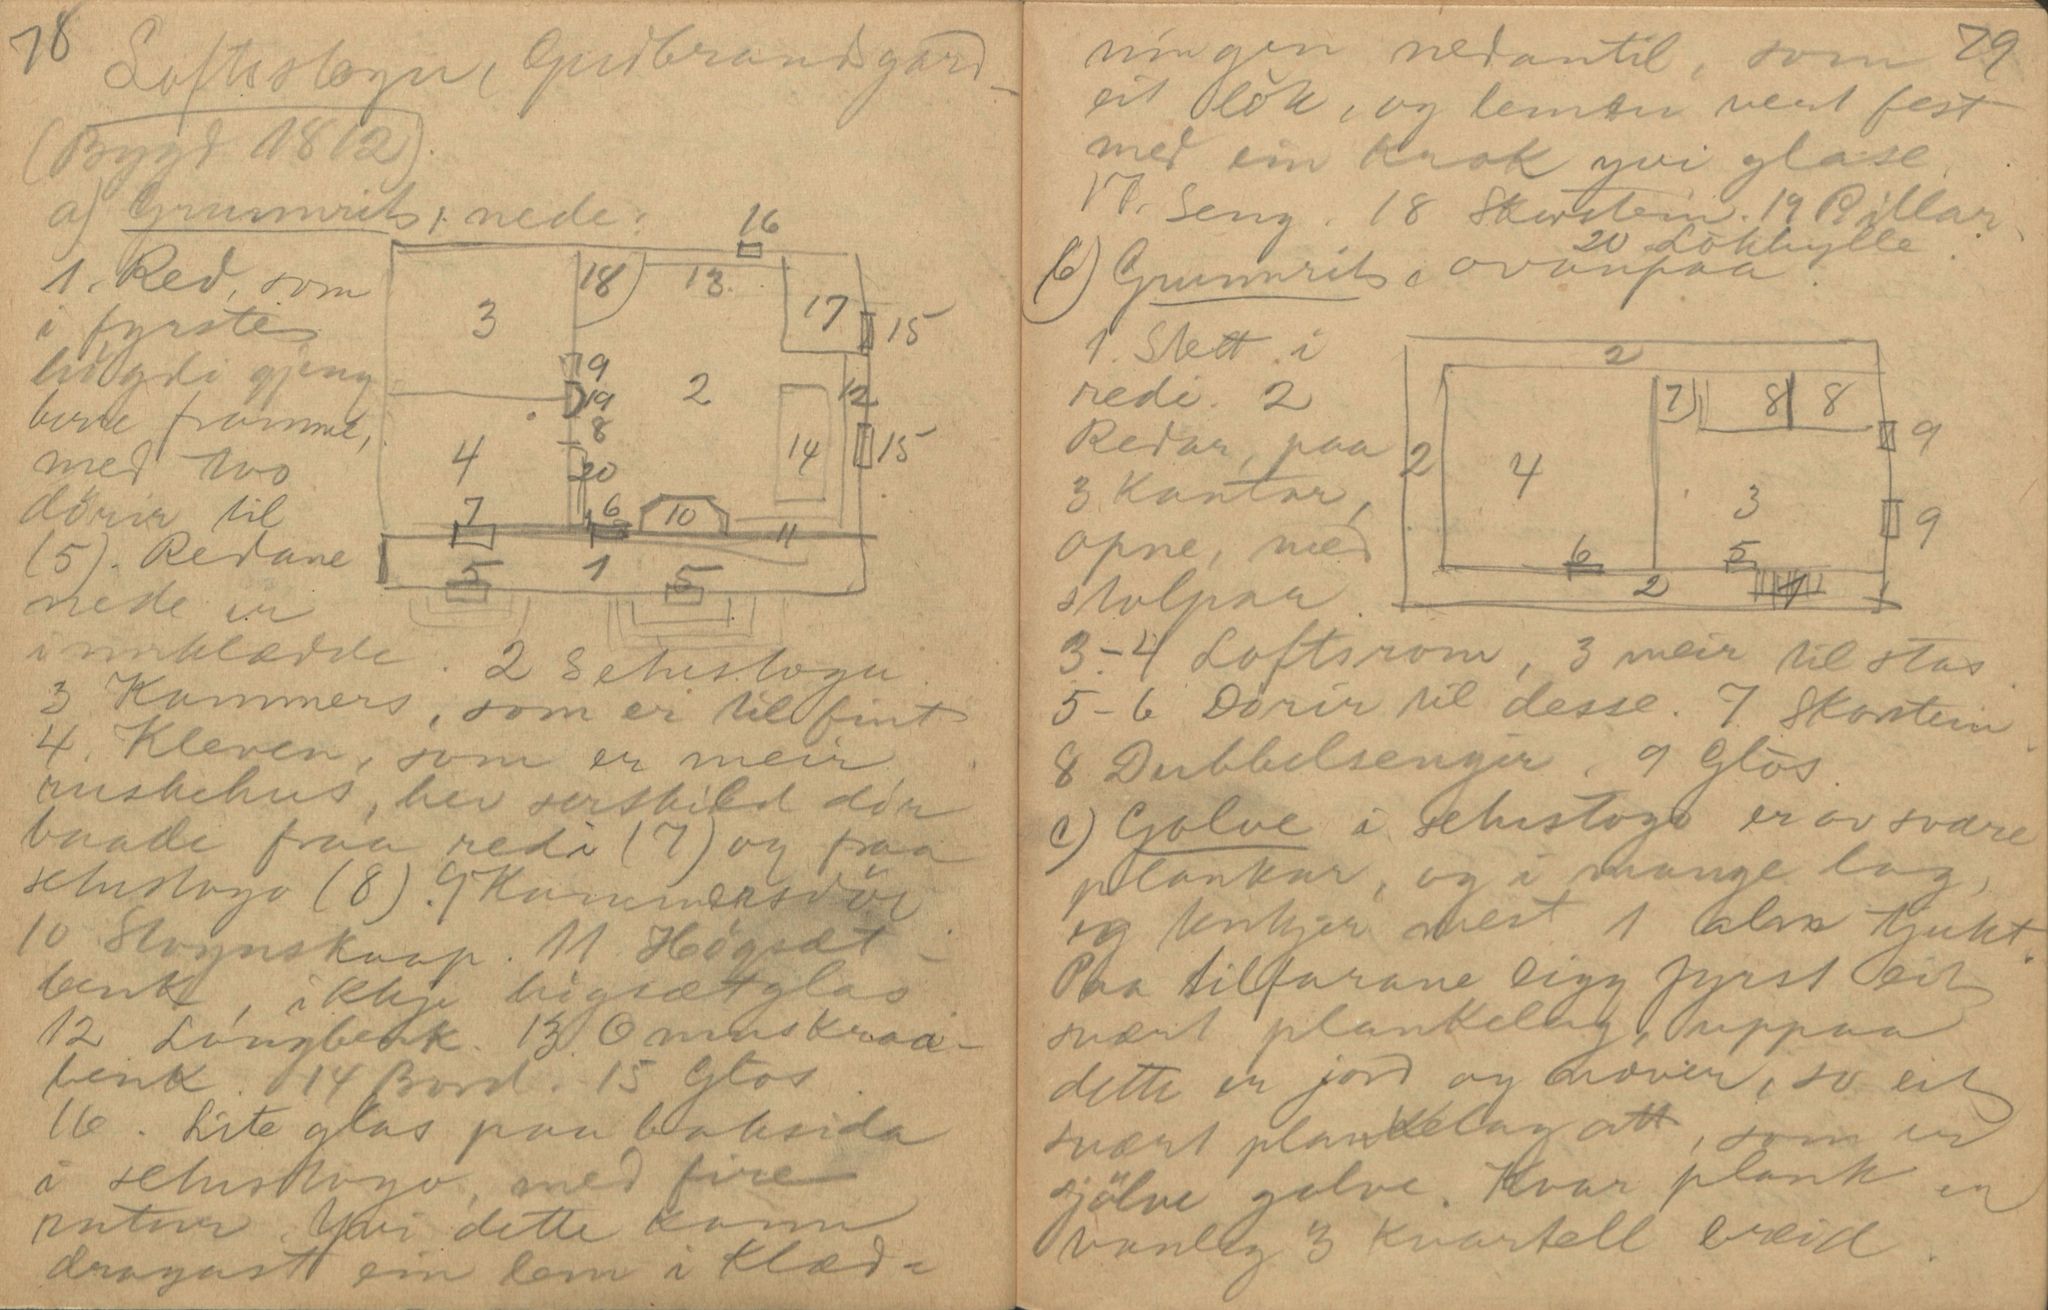 78
Loftsstogu, Gudbrandsgard
(Bygd 1812).
a) Grunnrits, nede:
1. Red, som
i fyrste
högdi gjeng
berre framme,
med tvo
dörir til
(5). Redane
nede er
innklædde. 2 Setustogu
3 Kammers, som er til fint
4. Kleven, som er meir
ruskehus, hev serskild dör
baade fraa redi (7) og fraa
setustogo (8). 9 Kammersdör
10 Stognskaap. 11 Högsæt-
benk, ikkje högsætglas
12 Langbenk. 13 Omnskraa-
benk. 14 Bord. 15 Glas
16. Lite glas paa baksida
i setustogo, med fire
rutur. Yvi dette kann
dragast ein lem i klæd-
16
3
18
13
17
15
9
19
2
12
8
4
20
14
15
7
6
10
11
5
1
5
79
ningen nedantil, som
eit lok, og lemen vert fest
med ein krok yvi glase
17. Seng. 18 Skorstein. 19 Pillar
20 Lökhylle
b) Grunnrits, ovanpaa.
1. Stett i
redi. 2
Redar, paa
3 Kantar,
opne, med
stolpar
2
7
8
8
9
2
4
3
9
6
5
2
1
3-4 Loftsrom, 3 meir til stas
5-6 Dörir til desse. 7 Skorstein
8 Dubbelsengir, 9 Glas
c) Golve i setustogo er av svære
plankar, og i mange lag,
og tenkjer mest 1 alen tjukt.
Paa tilfarane ligg fyrst eit
svært plankelag, uppaa
dette er jord og næver, so eit
svært plankelag att, som er
sjölve golve. Kvar plank er
vanleg 3 kvartell breid.